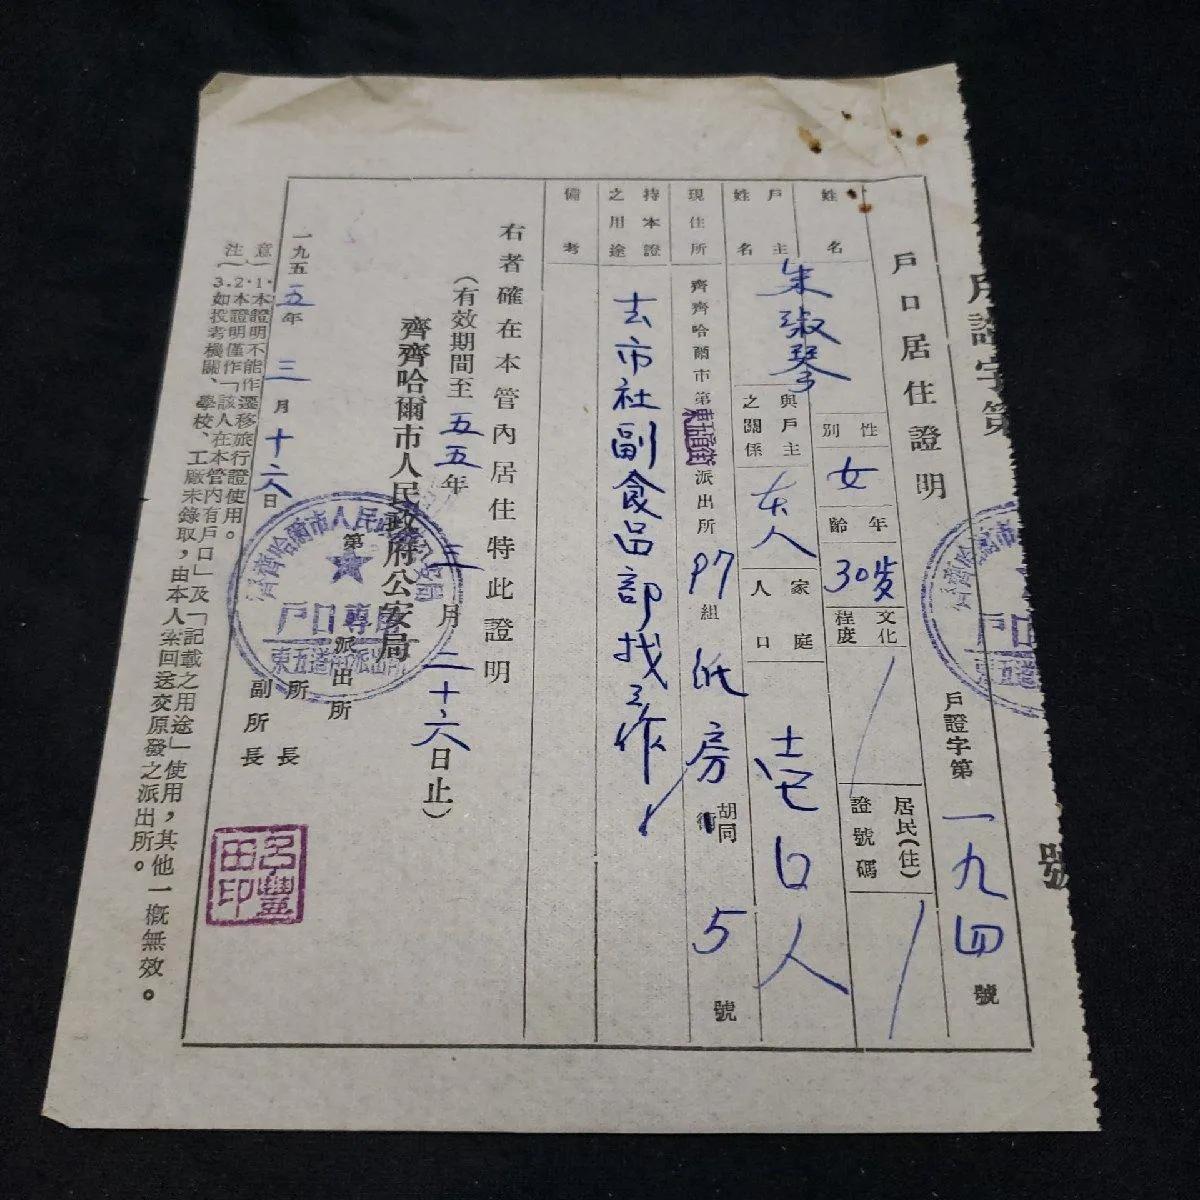 戶證字第
號
戶口居住證明
戶證字第一九四號
姓名
性別 女
年齡 30岁
文化程度
居民(住)證號碼
戶主姓名 朱淑琴
與戶主之關係 本人
家庭人口 壱口人
現住所 齊齊哈爾市第東五道街派出所97組 房胡同 5號
持本證之用途 去市社副食品部找工作
備考
右者確在本管內居住特此證明
(有效期間至五五年三月二十六日止)
齊齊哈爾市人民政府公安局
第 派出所
所長
副所長
一九五五年三月十六日
注意
1.本證明不能作遷移旅行證使用。
2.本證明僅作「該人在本管內有戶口」及「記載之用途」使用,其他一概無效。
3.如投考機關、學校、工廠未錄取,由本人索回送交原發之派出所。
齊齊哈爾市人民政府公安局
戶口專用
東五道街派出所
呂豐田印